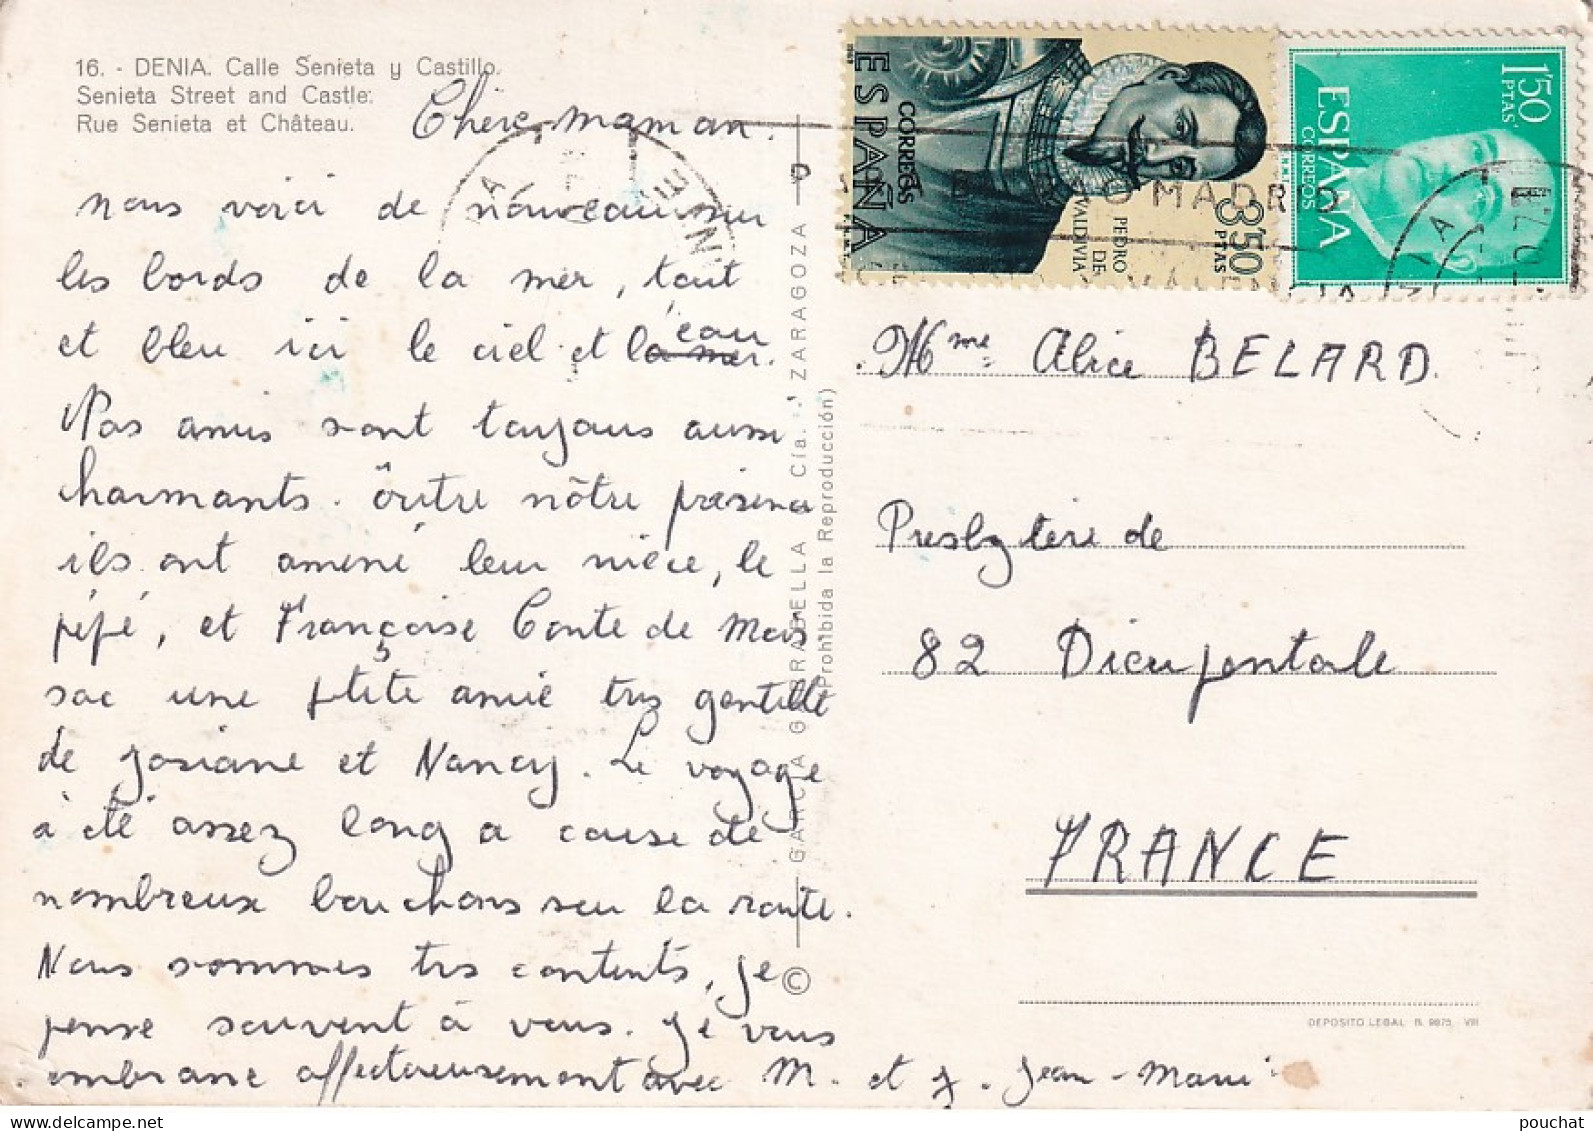 16. - DENIA. Calle Senieta y Castillo.
Senieta Street and Castle.
Rue Senieta et Château.
Chère maman.
nous voici de nouveau sur
les bords de la mer, tout
et bleu ici le ciel et la mer. l'eau
Nos amis sont toujours aussi
charmants. Outre nôtre présence
ils ont amené leur nièce, le
pépé, et Françoise Conte de Mois
sac une ptite amie très gentille
de Josiane et Nancy. Le voyage
à été assez long a cause de
nombreux bouchons sur la route.
Nous sommes très contents, je
pense souvent à vous. Je vous
embrasse affectueusement avec M. et J. Jean-Marie
GARCIA GARRABELLA Y Cía. - ZARAGOZA
(Prohibida la Reproducción)
©
ESPAÑA
CORREOS
PEDRO
DE
VALDIVIA
3'50
PTAS
1'50
PTAS
ESPAÑA
CORREOS
MADRID
Mme Alice BELARD
Presbytère de
82 Dieupentale
FRANCE
DEPOSITO LEGAL B. 9875. VIII
pouchat